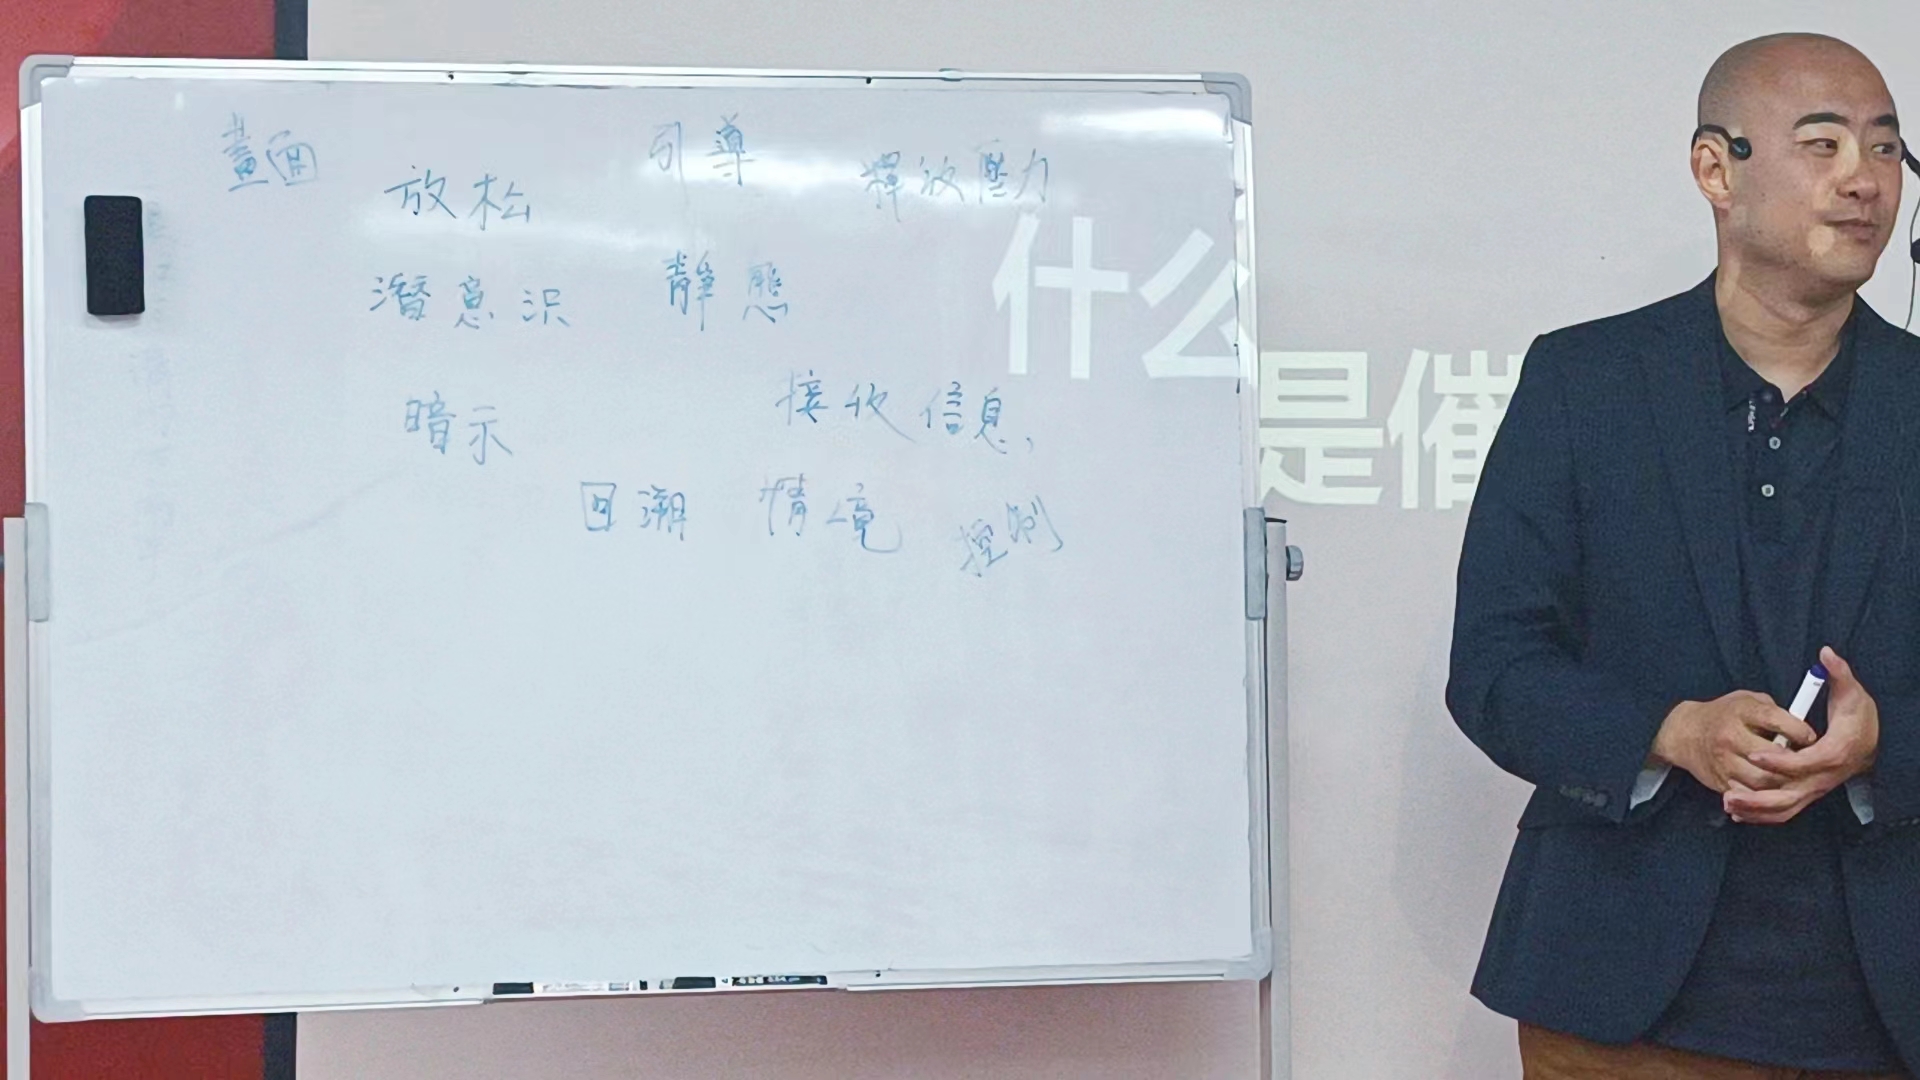 畫面 放松 引導 釋放壓力
潛意识 靜態
暗示 接收信息、
回溯 情境 控制
什么
是催